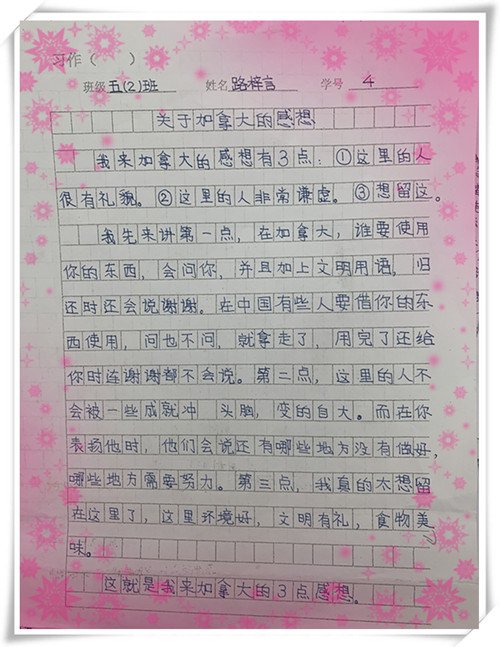 习作（ ）
班级 五(2)班 姓名 路梓言 学号 4
关于加拿大的感想
我来加拿大的感想有3点：①这里的人
很有礼貌。②这里的人非常谦虚。③想留这。
我先来讲第一点，在加拿大，谁要使用
你的东西，会问你，并且加上文明用语，归
还时还会说谢谢。在中国有些人要借你的东
西使用，问也不问，就拿走了，用完了还给
你时连谢谢都不会说。第二点，这里的人不
会被一些成就冲 头脑，变的自大。而在你
表扬他时，他们会说还有哪些地方没有做好，
哪些地方需要努力。第三点，我真的太想留
在这里了，这里环境好，文明有礼，食物美
味。
这就是我来加拿大的3点感想。